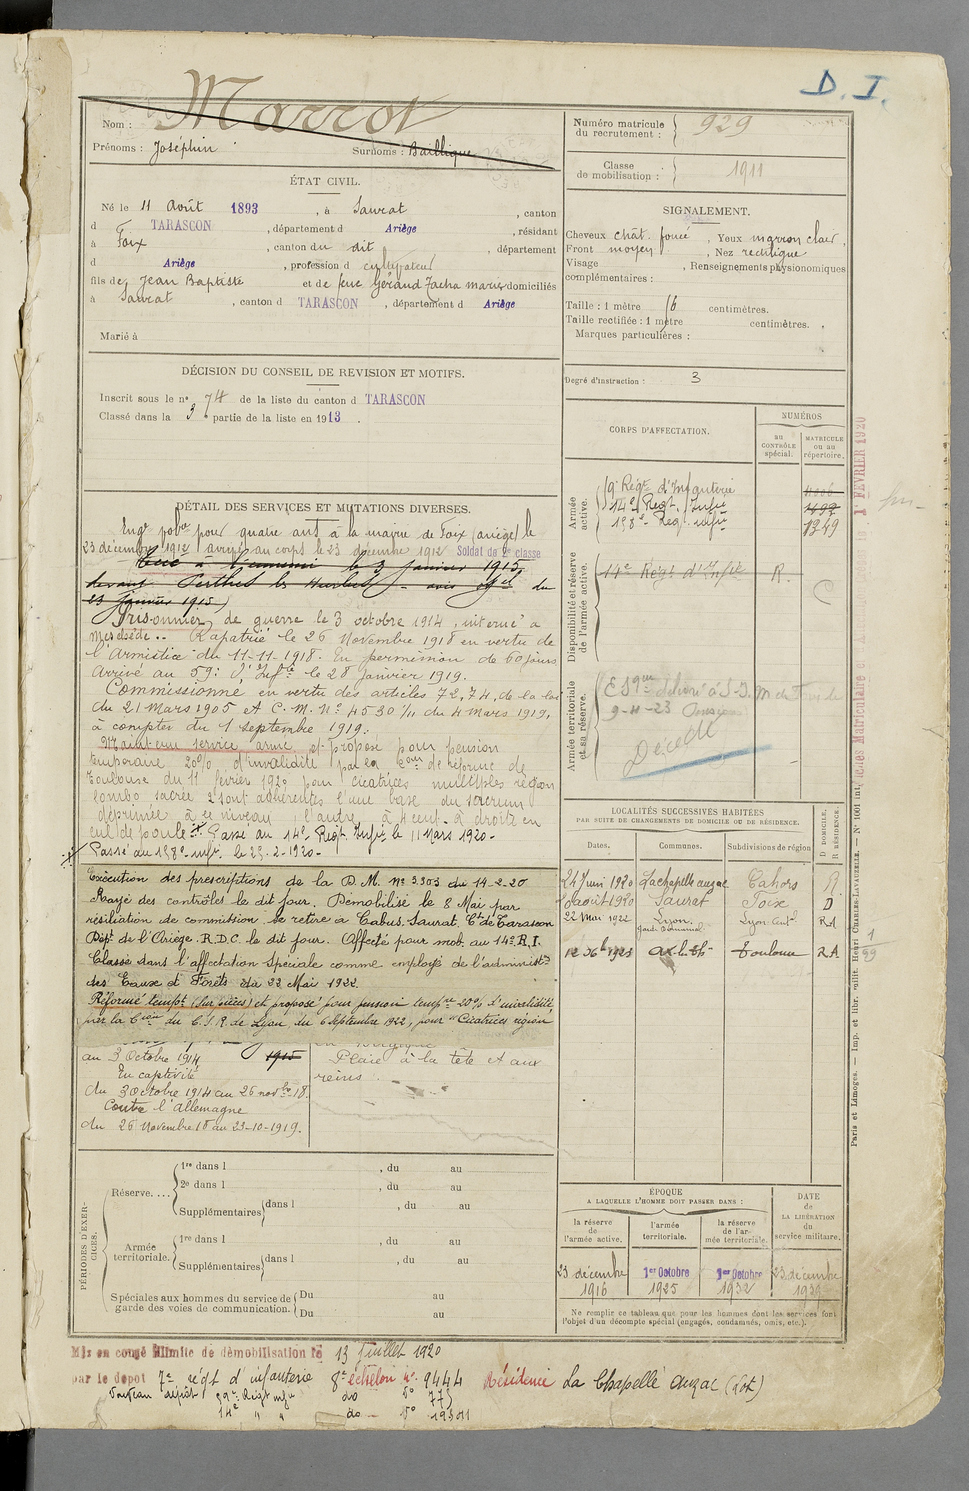 D. I.
Nom : Marrot
Prénoms : Joséphin Surnoms : Baillique
Numéro matricule du recrutement : 929
Classe de mobilisation : 1911
ÉTAT CIVIL.
Né le 11 Août 1893, à Saurat, canton
d TARASCON, département d Ariège, résidant
à Foix, canton du dit, département
d Ariège, profession d cultivateur
fils de Jean Baptiste et de feue Gérand Zacha marie domiciliés
à Saurat, canton d TARASCON, département d Ariège
Marié à
SIGNALEMENT.
Cheveux chât. foncé, Yeux marron clair,
Front moyen, Nez rectiligne
Visage , Renseignements physionomiques
complémentaires :
Taille : 1 mètre 16 centimètres.
Taille rectifiée : 1 mètre centimètres.
Marques particulières :
Degré d'instruction : 3
DÉCISION DU CONSEIL DE REVISION ET MOTIFS.
Inscrit sous le n° 74 de la liste du canton d TARASCON
Classé dans la 3e partie de la liste en 1913.
CORPS D'AFFECTATION.
NUMÉROS
au CONTRÔLE spécial.
MATRICULE ou au répertoire.
Armée active.
9e Régt d'Infanterie
14e Régt Infie
158e Régt Infie 1349
Disponibilité et réserve de l'armée active.
14e Régt d'Infie R.
Armée territoriale et sa réserve.
9-4-23
Décédé
DÉTAIL DES SERVICES ET MUTATIONS DIVERSES.
Engé volre pour quatre ans à la mairie de Foix (ariège) le
23 décembre 1912 arrivé au corps le 23 décembre 1912 Soldat de 2e classe
Tué à l'ennemi le 3 janvier 1915,
devant Perthes les Hurlus - avis offel du
23 janvier 1915)
Prisonnier de guerre le 3 octobre 1914, interné à
Merseder.. Rapatrié le 26 Novembre 1918 en vertu de
l'Armistice du 11-11-1918. En permission de 60 jours
Arrivé au 59e R. Infie le 28 janvier 1919.
Commissionné en vertu des articles 72, 74, de la loi
du 21 Mars 1905 et C. M. N° 4530 1/11 du 4 Mars 1919,
à compter du 1 septembre 1919.
Maintenu service armé et proposé pour pension
temporaire 20% d'invalidité par la Con de réforme de
Toulouse du 11 février 1920 pour cicatrices multiples région
lombo sacrée 2 sont adhérentes l'une base du sacrum
déprimée à ce niveau, l'autre à 4 cent. à droite en
cul de poule. Passé au 14e Régt Infie le 11 Mars 1920-
Passé au 158e infie le 25-2-1920-
Exécution des prescriptions de la D. M. N° 3303 du 14-2-20
Rayé des contrôles le dit jour. Démobilisé le 8 Mai par
résiliation de commission. se retire à Cabus. Saurat. Ct de Tarascon
Dépt de l'Ariège. R.D.C. le dit jour. Affecté pour mob. au 14e R.I.
Classé dans l'affectation Spéciale comme employé de l'administon
des Eaux et Forêts du 22 Mai 1922.
Réformé tempt (sur pièces) et proposé pour pension tempre 20% d'invalidité
par la Cion du C.S.R. de Lyon du 6 Septembre 1922, pour "Cicatrices région
au 3 Octobre 1914
En captivité
du 3 Octobre 1914 au 26 novbre 18.
Contre l'allemagne
du 26 Novembre 18 au 23-10-1919.
Plaie à la tête et aux
reins.
LOCALITÉS SUCCESSIVES HABITÉES
PAR SUITE DE CHANGEMENTS DE DOMICILE OU DE RÉSIDENCE.
Dates. Communes. Subdivisions de région. D DOMICILE. R RÉSIDENCE.
24 Juin 1920 Lachapelle auzac Cahors R.
août 1920 Saurat Foix D
22 Mai 1922 Lyon Lyon RA
1923 ax-l-th Toulouse RA
ÉPOQUE
A LAQUELLE L'HOMME DOIT PASSER DANS :
la réserve de l'armée active.
l'armée territoriale.
la réserve de l'armée territoriale.
DATE de LA LIBÉRATION du service militaire.
23 décembre 1916
1er Octobre 1925
1er Octobre 1932
23 décembre
Ne remplir ce tableau que pour les hommes dont les services font l'objet d'un décompte spécial (engagés, condamnés, omis, etc.).
PÉRIODES D'EXERCICES.
Réserve....
1re dans l , du au
2e dans l , du au
Supplémentaires dans l , du au
Armée territoriale.
1re dans l , du au
Supplémentaires dans l , du au
Spéciales aux hommes du service de garde des voies de communication.
Du au
Du au
Paris et Limoges. — Imp. et libr. milit. Henri CHARLES-LAVAUZELLE. — N° 1001
1er FÉVRIER 1920
Mis en congé illimité de démobilisation le 13 Juillet 1920
par le dépôt 7e régt d'infanterie 8e échelon n° 9444 Résidence La Chapelle Auzac (Lot)
59e Régt infie do N° 775
14e " " do N° 19301